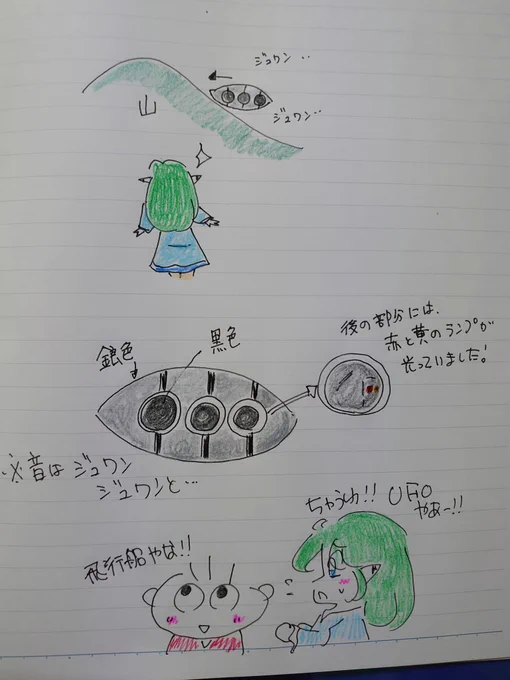 ジュワン‥
ジュワン‥
山
後の部分には、
赤と黄のランプが
光っていました!
黒色
銀色
※音はジュワン
ジュワンと…
ちゃうわ!! UFO
やぁー!!
飛行船やな!!